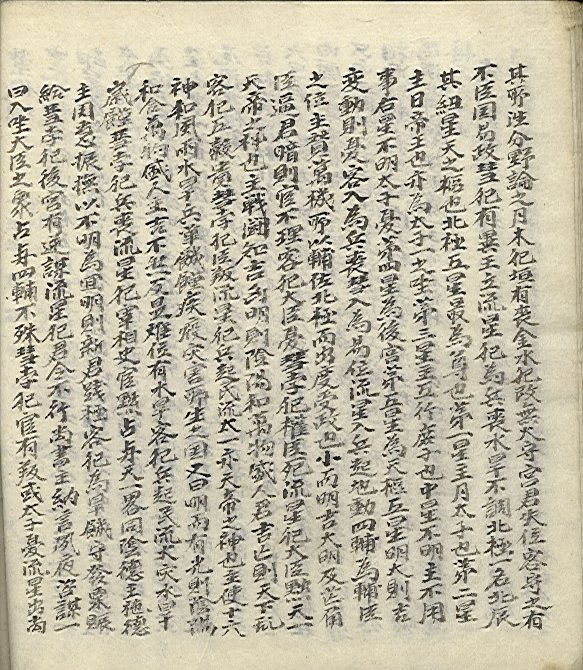 其野注分野論之月木犯垣有喪金水犯改無大守宮君失位客守之有
不臣国易政彗犯有異王立流星犯為兵喪水旱不調北極一名北辰
其紐星天之極也北極五星最為尊也第一星主月太子也第二星
主日帝王也亦為太子之坐第三星主五行庶子也中星不明主不用
事右星不明太子憂第四星為後宮第五星為天樞五星明大則吉
變動則憂客入為兵喪彗入為易位流星入兵起地動四輔為輔臣
之位主賛萬機所以輔佐北極而出度受政也小而明吉大明及芒角
臣逼君暗則官不理客犯大臣憂彗孛犯權臣死流星犯大臣黜天一
天帝之神也主戦闘知吉凶明則陰陽和萬物盛人君吉亡則天下乱
客犯五穀貴彗孛犯臣叛流星犯兵起民流太一亦天帝之神也主使十六
神和風雨水旱兵革饑饉疾疫災害所生之国又曰明而有光則陰陽
和合萬物盛人主吉不然反是離位有水旱客犯兵起民流火災水旱
饑饉彗孛犯兵喪流星犯宰相史官黜占与天一畧同陰德主施德
主周急振撫以不明為宜明則新君踐極客犯為旱饑守發粟賑
給彗孛犯後宮有逆謀流星犯君令不行尚書主納言夙夜咨謀一
曰八坐大臣之象占与四輔不殊彗孛犯官有叛或太子憂流星出尚